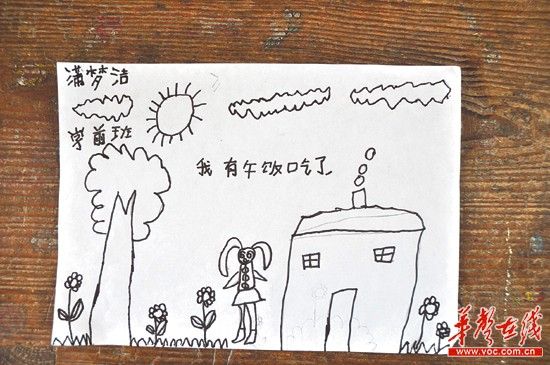 满梦洁
学前班
我有午饭吃了
华声在线
www.voc.com.cn